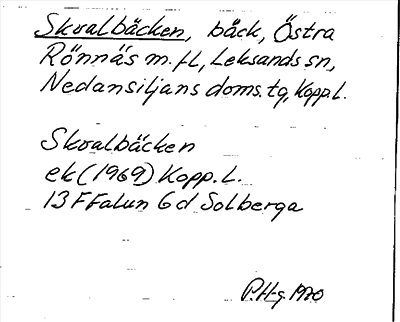 Skvalbäcken, bäck, Östra
Rönnäs m. fl., Leksands sn,
Nedansiljans doms. tg, Kopp. l.
Skvalbäcken
ek (1969) Kopp. L.
13 F Falun 6 d Solberga
P. H-g 1970